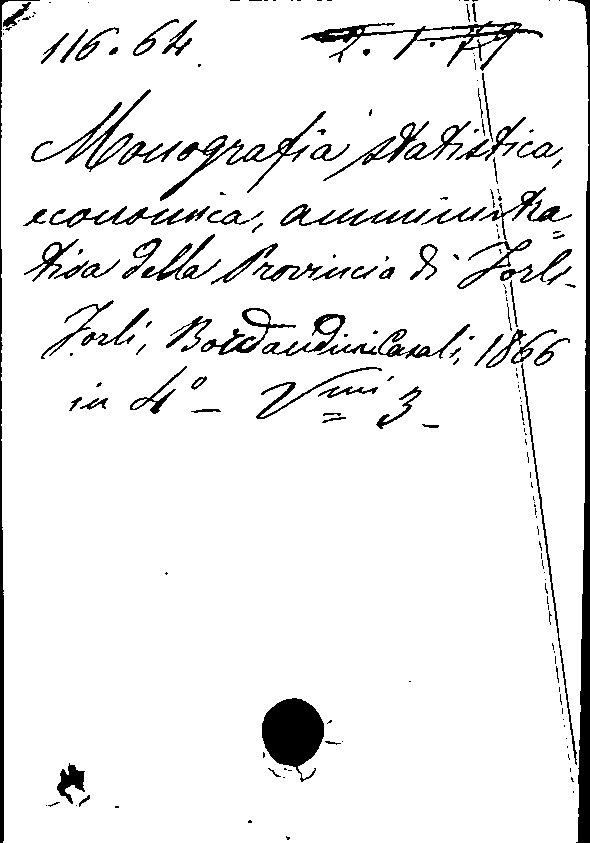 116.64. 2.1.79
Monografia statistica,
economica, amministra=
tiva della Provincia di Forlì-
Forlì, Bordandini Casali, 1866
in 4º - Vmi 3-